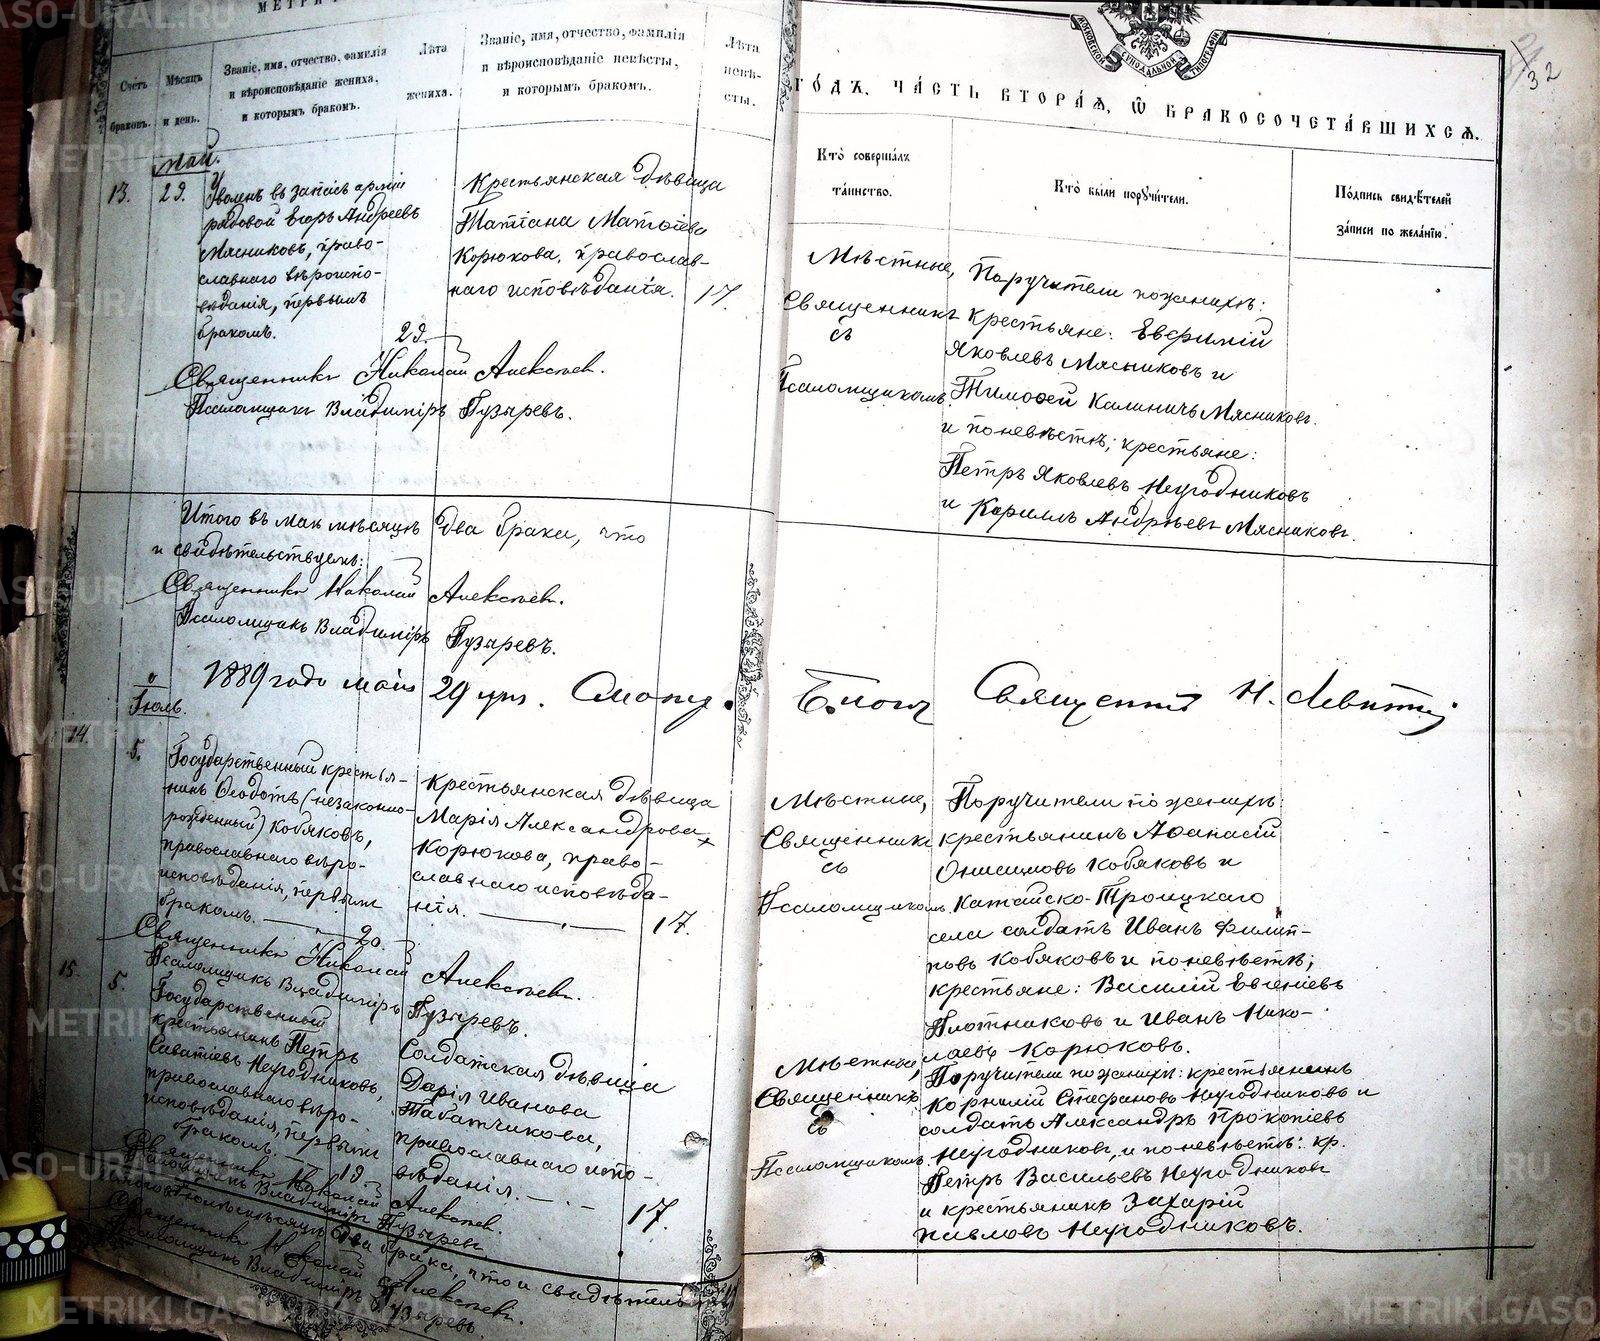 Счетъ браковъ.
Мѣсяцъ и день.
Званіе, имя, отчество, фамилія
и вѣроисповѣданіе жениха,
и которымъ бракомъ.
Лѣта
жениха.
Званіе, имя, отчество, фамилія
и вѣроисповѣданіе невѣсты,
и которымъ бракомъ.
Лѣта
невѣ-
сты.
Май.
13.
29.
Уволенъ въ запасъ арміи
рядовой Егоръ Андреевъ
Мясниковъ, право-
славнаго вѣроиспо-
вѣданія, первымъ
бракомъ.
29.
Крестьянская дѣвица
Татіана Матѳіева
Корюкова, православ-
наго исповѣданія.
17.
Священникъ Николай Алексѣев.
Псаломщикъ Владиміръ Пузыревъ.
Итого въ маѣ мѣсяцѣ два брака, что
и свидѣтельствуемъ:
Священникъ Николай Алексѣев.
Псаломщикъ Владиміръ Пузыревъ.
1889 года мая 29 дня.
Іюль.
14.
5.
Государственный крестья-
нинъ Ѳеодотъ (незаконно-
рожденный) Кобяковъ,
православнаго вѣро-
исповѣданія, первымъ
бракомъ.
20.
Крестьянская дѣвица
Марія Александрова
Корюкова, право-
славнаго исповѣда-
нія.
17.
Священникъ Николай Алексѣев.
Псаломщикъ Владиміръ Пузыревъ.
15.
5.
Государственный
крестьянинъ Петръ
Саватіевъ Неугодниковъ,
православнаго вѣро-
исповѣданія, первымъ
бракомъ.
19.
Солдатская дѣвица
Дарія Иванова
Табатчикова,
православнаго испо-
вѣданія.
17.
Священникъ Николай Алексѣев.
Псаломщикъ Владиміръ Пузырев
Іюлѣ мѣсяцѣ два брака, что и свидѣтель
Священникъ Николай Алексѣев.
Псаломщикъ Владиміръ Пузыревъ.
МОСКОВСКОЙ СѴНОДАЛЬНОЙ ТИПОГРАФІИ
32
ГО́ДЪ, ЧА́СТЬ ВТОРА́Ѧ, Ѽ БРАКОСОЧЕТА́ВШИХСѦ.
Кто̀ соверша́лъ
та́инство.
Кто̀ были пору́чители.
По́дпись свидѣ́телей
за́писи по жела́нїю.
Мѣстные,
Священникъ
съ
Псаломщикомъ.
Поручители по женихѣ:
крестьяне: Евѳимій
Яковлевъ Мясниковъ и
Тимоѳей Калиничъ Мясниковъ.
и по невѣстѣ; крестьяне:
Петръ Яковлевъ Неугодниковъ
и Кириллъ Андрѣевъ Мясников.
Священник Н. Левитский
Мѣстные,
Священникъ
съ
Псаломщикомъ.
Поручители по женихѣ:
крестьянинъ Аѳанасій
Онисимовъ Кобяковъ и
Катайско-Троицкаго
села солдатъ Иванъ Филип-
повъ Кобяковъ и по невѣстѣ;
крестьяне: Василій Евгеніевъ
Плотниковъ и Иванъ Нико-
лаевъ Корюковъ.
Мѣстные,
Священникъ
съ
Псаломщикомъ.
Поручители по женихѣ: крестьянинъ
Корнилій Стефановъ Неугодниковъ и
солдатъ Александръ Прокопіевъ
Неугодниковъ, и по невѣстѣ: кр.
Петръ Васильевъ Неугодниковъ
и крестьянинъ Захарій
Павловъ Неугодниковъ.
METRIKI.GASO-URAL.RU